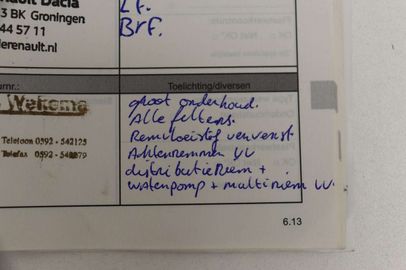 nault Dacia
3 BK Groningen
44 57 11
lerenault.nl
Lf.
Brf.
Toelichting/diversen
Telefoon 0592 - 542125
Telefax 0592 -
groot onderhoud.
Alle filters.
Remvloeistof ververst
Achterremmen VV
distributieriem +
waterpomp + multiriem VV.
6.13